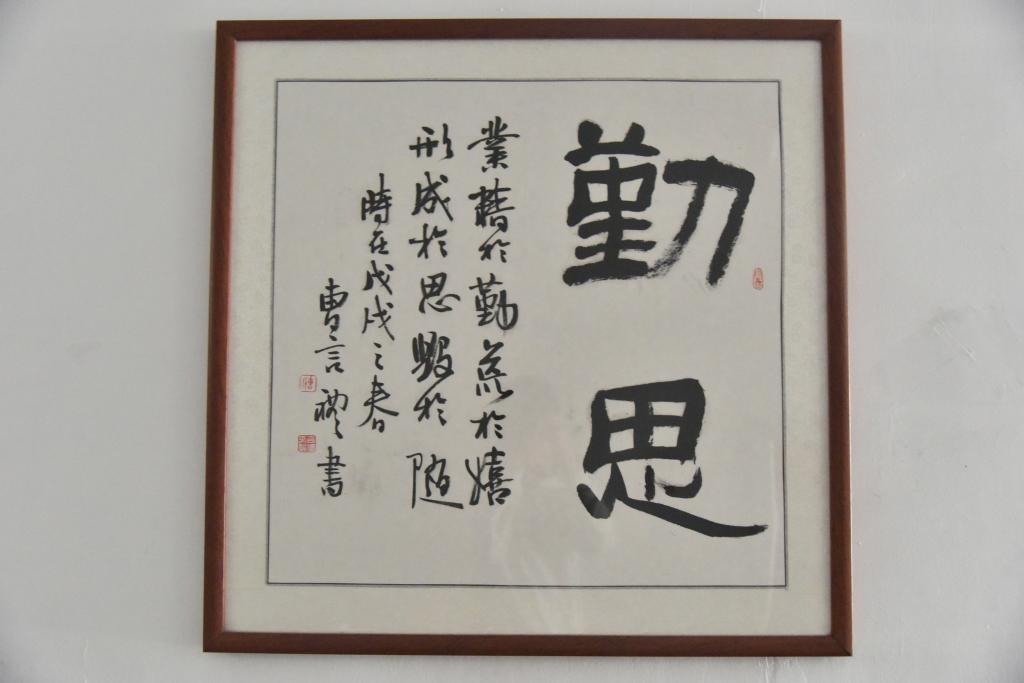 勤思
業精於勤荒於嬉
形成於思毁於随
時在戊戌之春
曹言禮書